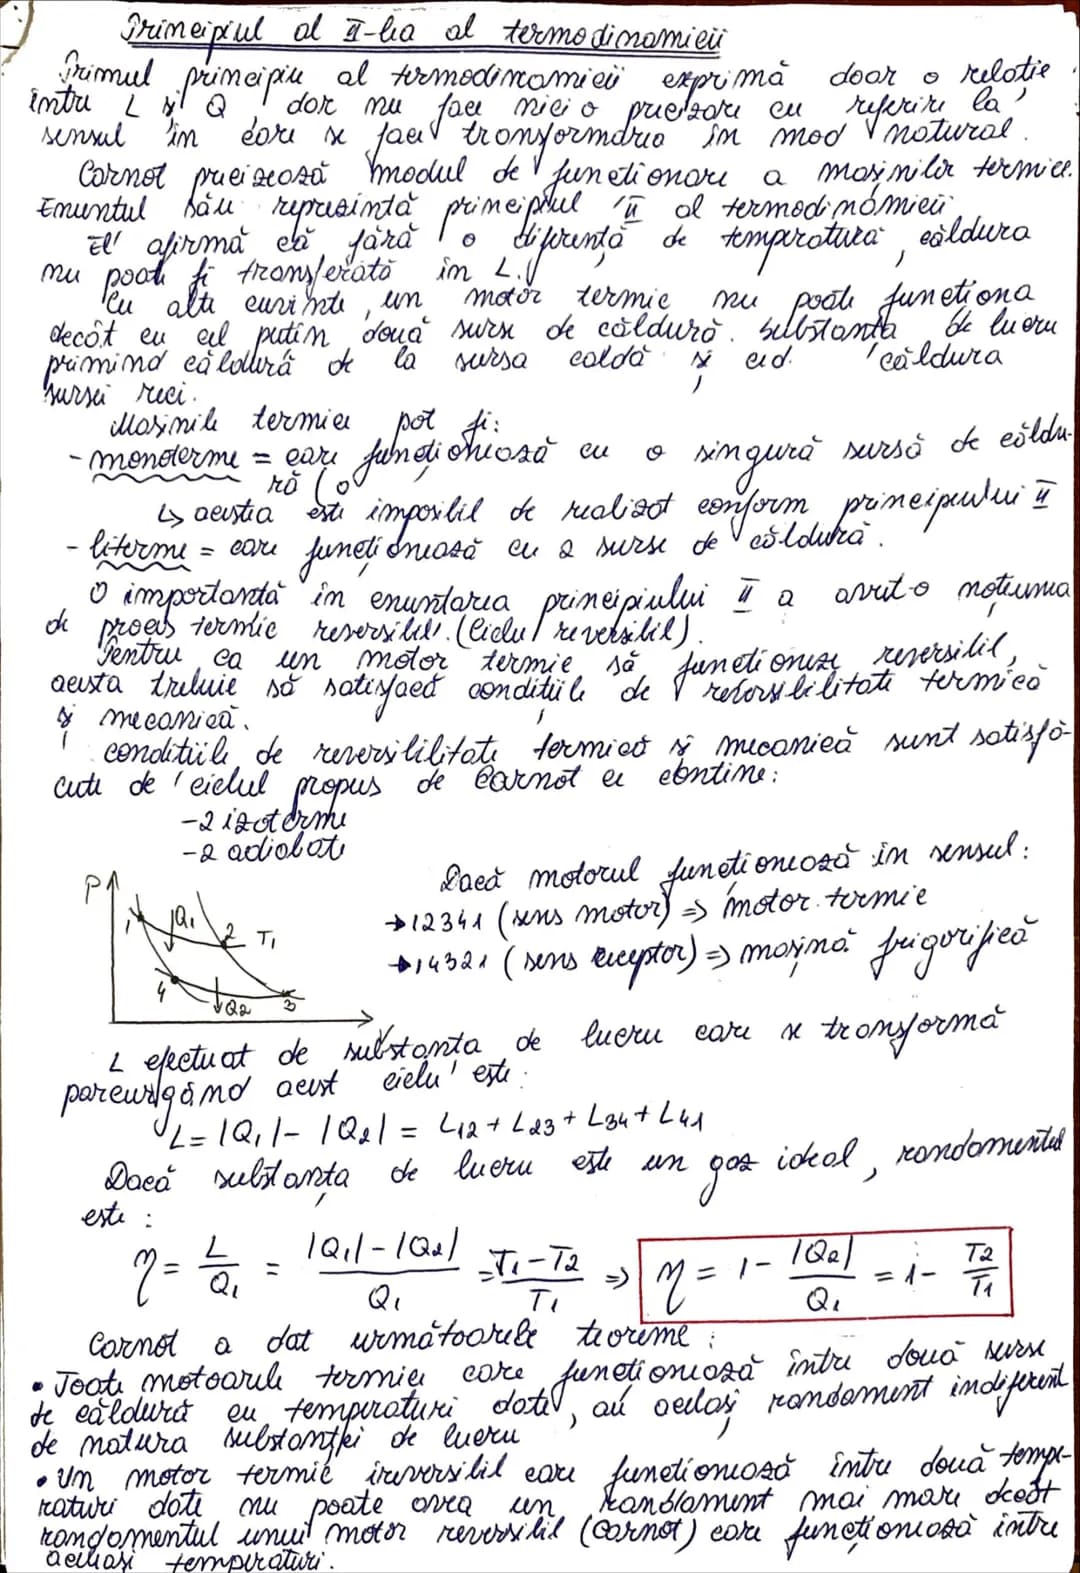 Principiul al II-lea al termodinamicii
Primul principiu al termodinamicii exprimă doar o relație
între L și Q, dar nu face nici o precizare cu referire la
sensul în care se face transformarea în mod natural.
Carnot precizează modul de funcționare a mașinilor termice.
Enunțul său reprezintă principiul II al termodinamicii
El afirmă că fără o diferență de temperatură, căldura
nu poate fi transferată în L.
Cu alte cuvinte, un motor termic nu poate funcționa
decât cu cel puțin două surse de căldură. Substanța de lucru
primind căldură de la sursa caldă și ced. căldura
sursei reci.
Mașinile termice pot fi:
- monoterme = care funcționează cu o singură sursă de căldu-
ră (o
↳ acestea este imposibil de realizat conform principiului II
- biterme = care funcționează cu 2 surse de căldură.
O importanță în enunțarea principiului II a avut-o noțiunea
de proces termic reversibil. (Ciclul reversibil).
Pentru ca un motor termic să funcționeze reversibil,
acesta trebuie să satisfacă condițiile de reversibilitate termică
și mecanică.
condițiile de reversibilitate termică și mecanică sunt satisfă-
cute de ciclul propus de Carnot ce conține:
-2 izoterme
-2 adiabate
Dacă motorul funcționează în sensul:
→12341 (sens motor) => motor termic
→14321 (sens receptor) => mașină frigorifică
P
1 |Q1 2 T1
4 Q2 3
L efectuat de substanța de lucru care se transformă
parcurgând acest ciclu este:
L = |Q1| - |Q2| = L12 + L23 + L34 + L41
Dacă substanța de lucru este un gaz ideal, randamentul
este :
η = L/Q1 = |Q1|-|Q2|/Q1 = T1-T2/T1 => η = 1- |Q2|/Q1 = 1- T2/T1
Carnot a dat următoarele teoreme :
• Toate motoarele termice care funcționează între două surse
de căldură cu temperaturi date, au același randament indiferent
de natura substanței de lucru
• Un motor termic ireversibil care funcționează între două tempe-
raturi date nu poate avea un randament mai mare decât
randamentul unui motor reversibil (Carnot) care funcționează între
aceleași temperaturi.